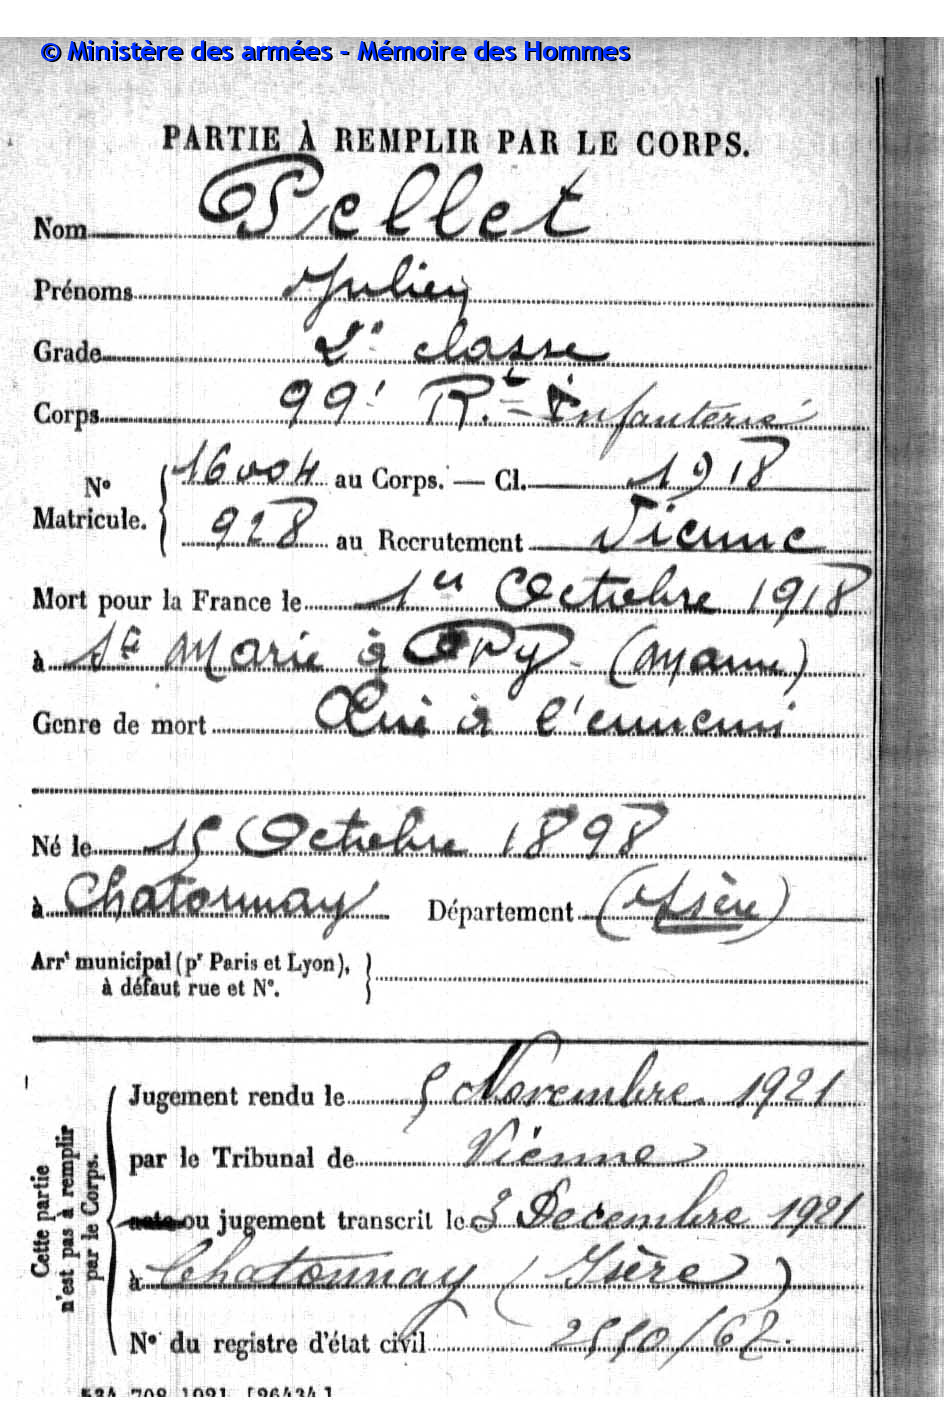 © Ministère des armées - Mémoire des Hommes
PARTIE À REMPLIR PAR LE CORPS.
Nom Pellet
Prénoms Julien
Grade 2e classe
Corps 99e Rt Infanterie
N° Matricule. { 16004 au Corps. — Cl. 1918
928 au Recrutement Vienne
Mort pour la France le 1er Octobre 1918
à Ste Marie à Py (Marne)
Genre de mort Tué à l'ennemi
Né le 15 Octobre 1898
à Chatonnay Département (Isère)
Arrt municipal (pr Paris et Lyon),
à défaut rue et N°.
Cette partie
n'est pas à remplir
par le Corps.
Jugement rendu le 5 Novembre 1921
par le Tribunal de Vienne
acte ou jugement transcrit le 3 Decembre 1921
à Chatonnay (Isère)
N° du registre d'état civil
534 708 1921 [26434]